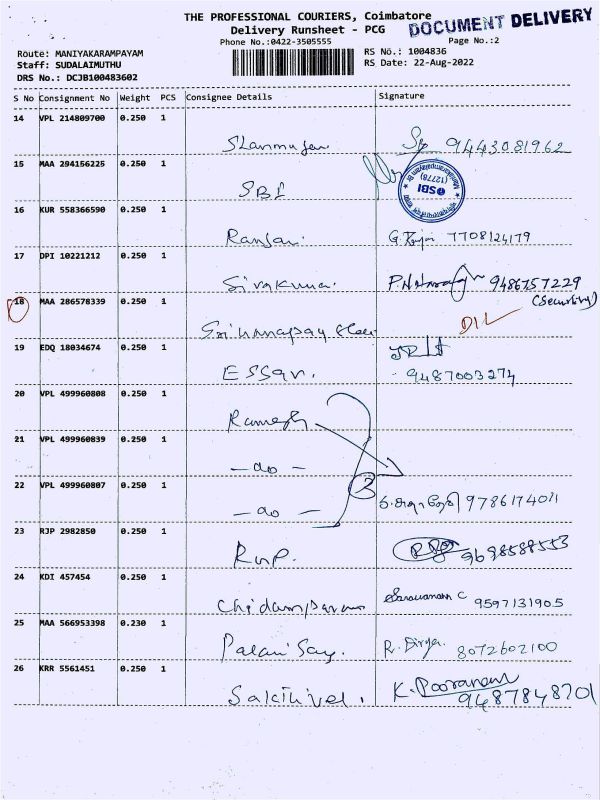 THE PROFESSIONAL COURIERS, Coimbatore
DOCUMENT DELIVERY
Delivery Runsheet - PCG
Phone No.:0422-3505555
Page No.:2
Route: MANIYAKARAMPAYAM
RS No.: 1004836
Staff: SUDALAIMUTHU
RS Date: 22-Aug-2022
DRS No.: DCJB100483602
S No Consignment No Weight PCS Consignee Details Signature
14 VPL 214809700 0.250 1 Shanmugam 9443081962
15 MAA 294156225 0.250 1 SBI
SBI
(12778)
16 KUR 558366590 0.250 1 Ranjani G. 7708124179
17 DPI 10221212 0.250 1 Sivakumar 9486757229
(Security)
18 MAA 286578339 0.250 1 D/L
19 EDQ 18034674 0.250 1 Essar.
9487003274
20 VPL 499960808 0.250 1 Ramesh
21 VPL 499960839 0.250 1 - do -
3
22 VPL 499960807 0.250 1 - do - 9786174011
23 RJP 2982850 0.250 1 9698588553
24 KDI 457454 0.250 1 Chidamparam Saravanan C 9597131905
25 MAA 566953398 0.230 1 Palani Samy. R. Divya. 8072602100
26 KRR 5561451 0.250 1 Sakthivel. K. Pooranam
9487848701